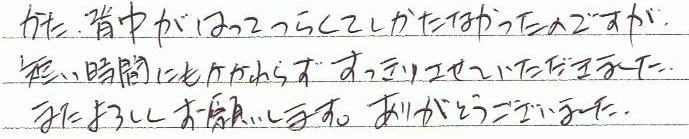 かた、背中がはってつらくてしかたなかったのですが、
短い時間にもかかわらず すっきりさせていただきました。
またよろしくお願いします。ありがとうございました。